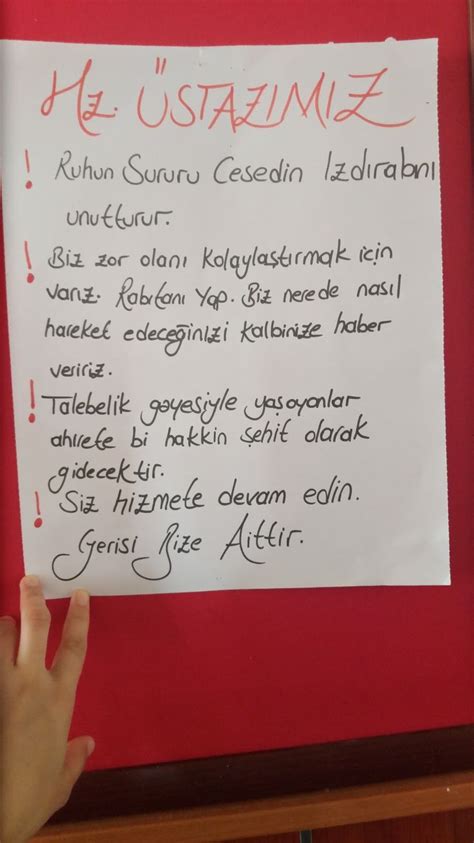 Hz. ÜSTAZIMIZ
! Ruhun Sururu Cesedin Izdırabnı
unutturur.
! Biz zor olanı kolaylaştırmak için
varız. Rabıtanı Yap. Biz nerede nasıl
hareket edeceğinizi kalbinize haber
veririz.
! Talebelik gayesiyle yaşayanlar
ahirete bi hakkin şehit olarak
gidecektir.
! Siz hizmete devam edin.
Gerisi Bize Aittir.